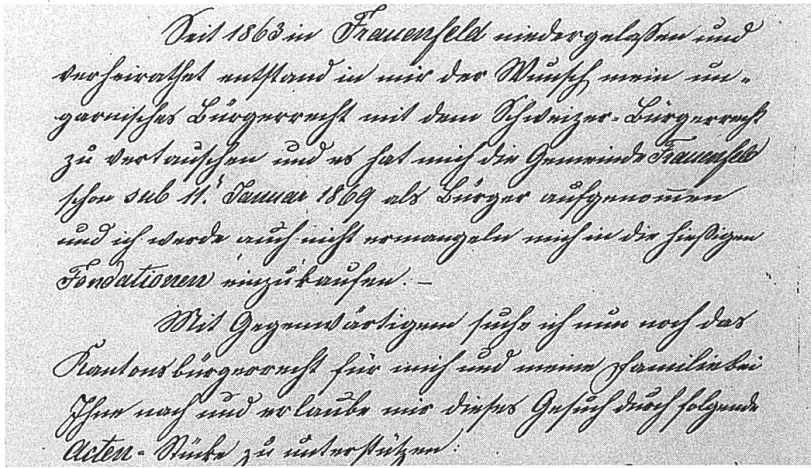 Seit 1863 in Frauenfeld niedergelassen und
verheirathet entstand in mir der Wunsch mein un-
garnisches Bürgerrecht mit dem Schweizer-Bürgerrecht
zu vertauschen und es hat mich die Gemeinde Frauenfeld
schon sub 11. Januar 1869 als Bürger aufgenom̅en
und ich werde auch nicht ermangeln mich in die hießigen
Fondationen einzukaufen. –
Mit Gegenwärtigem suche ich nun noch das
Kantonsbürgerrecht für mich und meine Familie bei
Ihne nach und erlaube mir dieses Gesuch durch folgende
Acten-Stücke zu unterstützen: